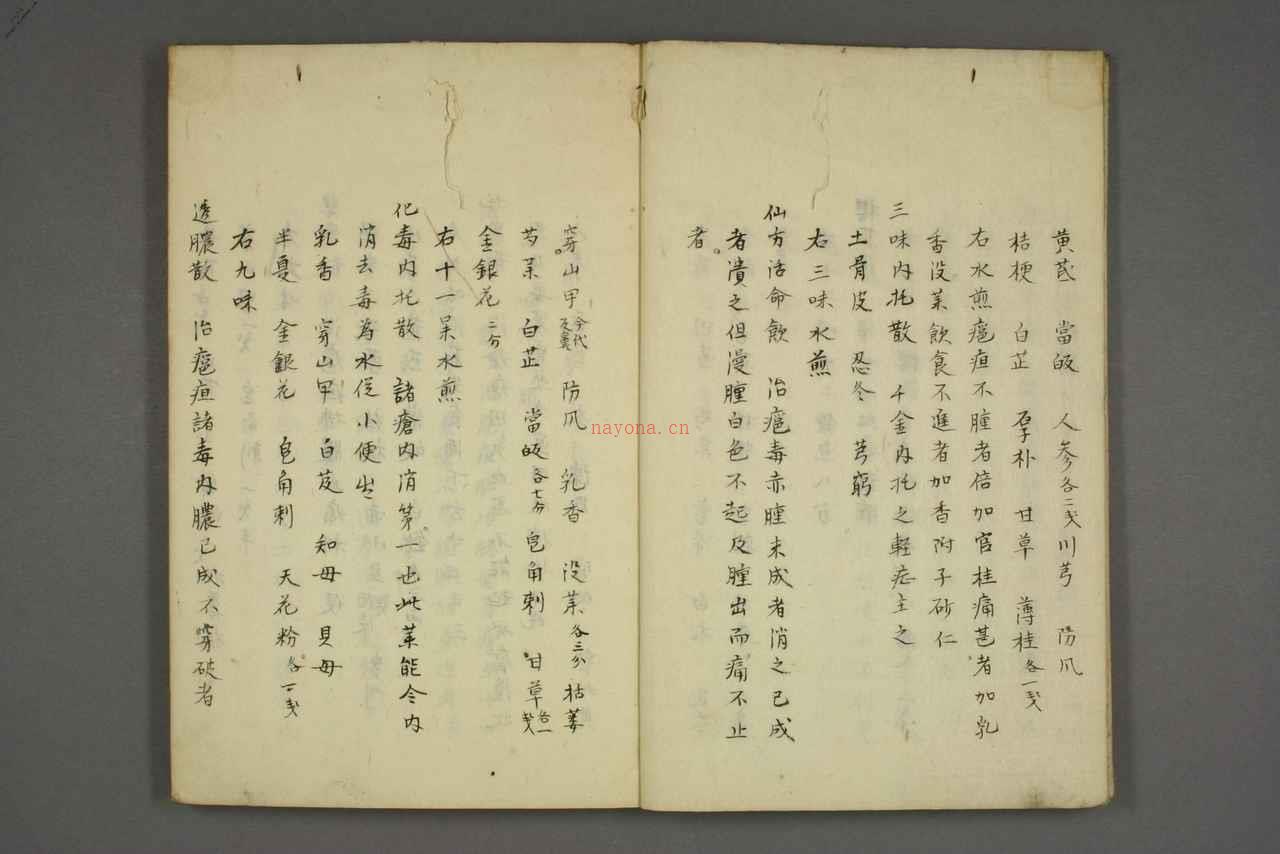 黄芪　當皈　人参各二戔川芎　防风
桔梗　白芷　厚朴　甘草　薄桂各一戔
右水煎癰疽不腫者倍加官桂痛甚者加乳
香没薬飲食不進者加香附子砂仁
三味内托散　千金内托之軽症主之
土骨皮　忍冬　芎窮
右三味水煎
仙方活命飲　治癰毒赤腫未成者消之已成
者潰之但漫腫白色不起及腫出而痛不止
者
穿山甲今代　防风　乳香　没薬各三分　枯蒌
芍薬　白芷　當皈各七分　皂角刺　甘草各一戔
金銀花二分
右十一味水煎
化毒内托散　諸瘡内消第一也此薬能令内
消去毒為水従小便出
乳香　穿山甲　白芨　知母　貝母
半夏　金銀花　皂角刺　天花粉各一戔
右九味
透膿散　治癰疽諸毒内膿已成不穿破者
nayona.cn